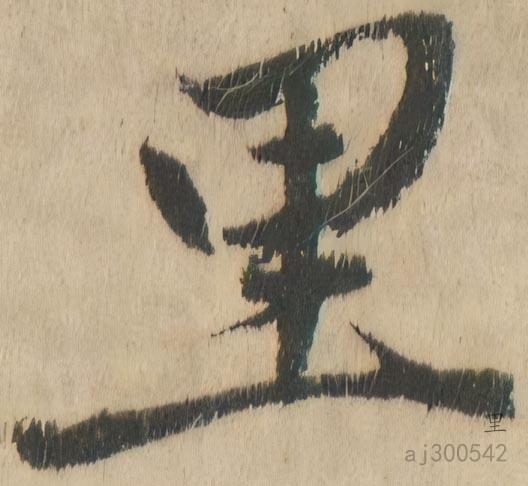 里
里
aj300542